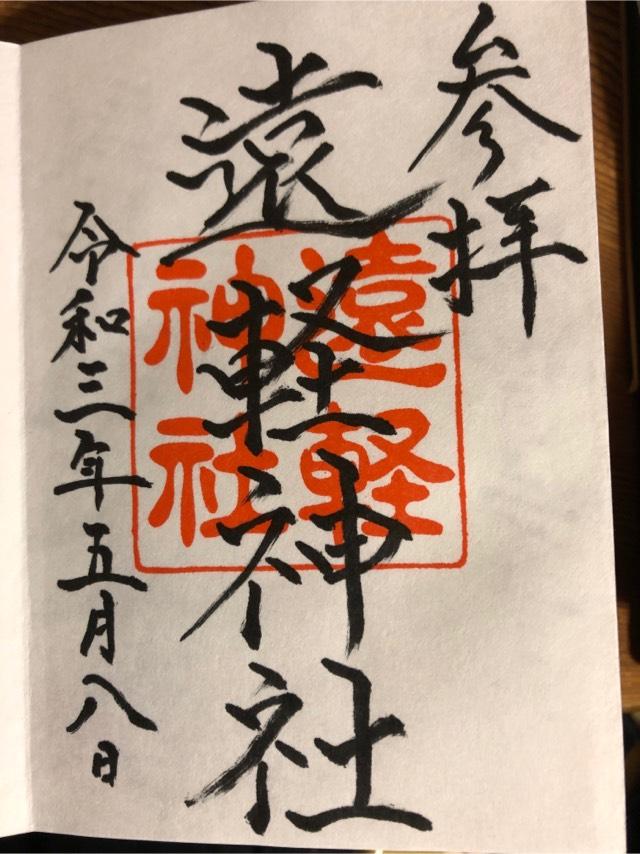 参拝
遠軽神社
遠軽
神社
令和三年五月八日